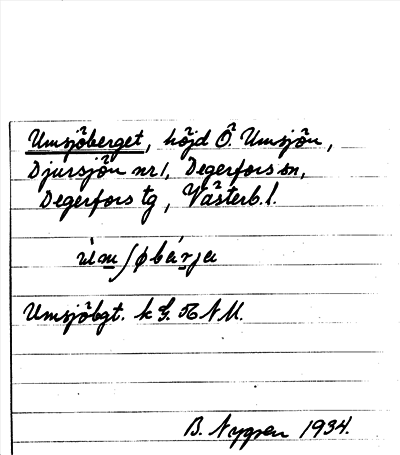 Umsjöberget, höjd Ö. Umsjön,
Djursjön nr 1, Degerfors sn,
Degerfors tg, Västerb. l.
Umsjöbgt. k G.
B. Nygren 1934.